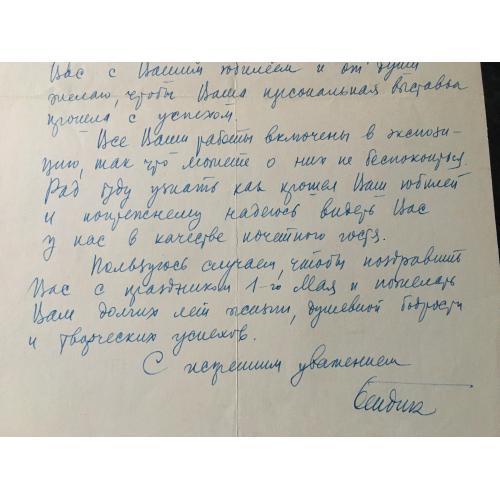 Вас с Вашим юбилеем и от души
желаю, чтобы Ваша персональная выставка
прошла с успехом.
Все Ваши работы включены в экспози-
цию, так что можете о них не беспокоиться.
Рад буду узнать как прошел Ваш юбилей
и попрежнему надеюсь видеть Вас
у нас в качестве почетного гостя.
Пользуюсь случаем, чтобы поздравить
Вас с праздником 1-го Мая и пожелать
Вам долгих лет жизни, душевной бодрости
и творческих успехов.
С искренним уважением